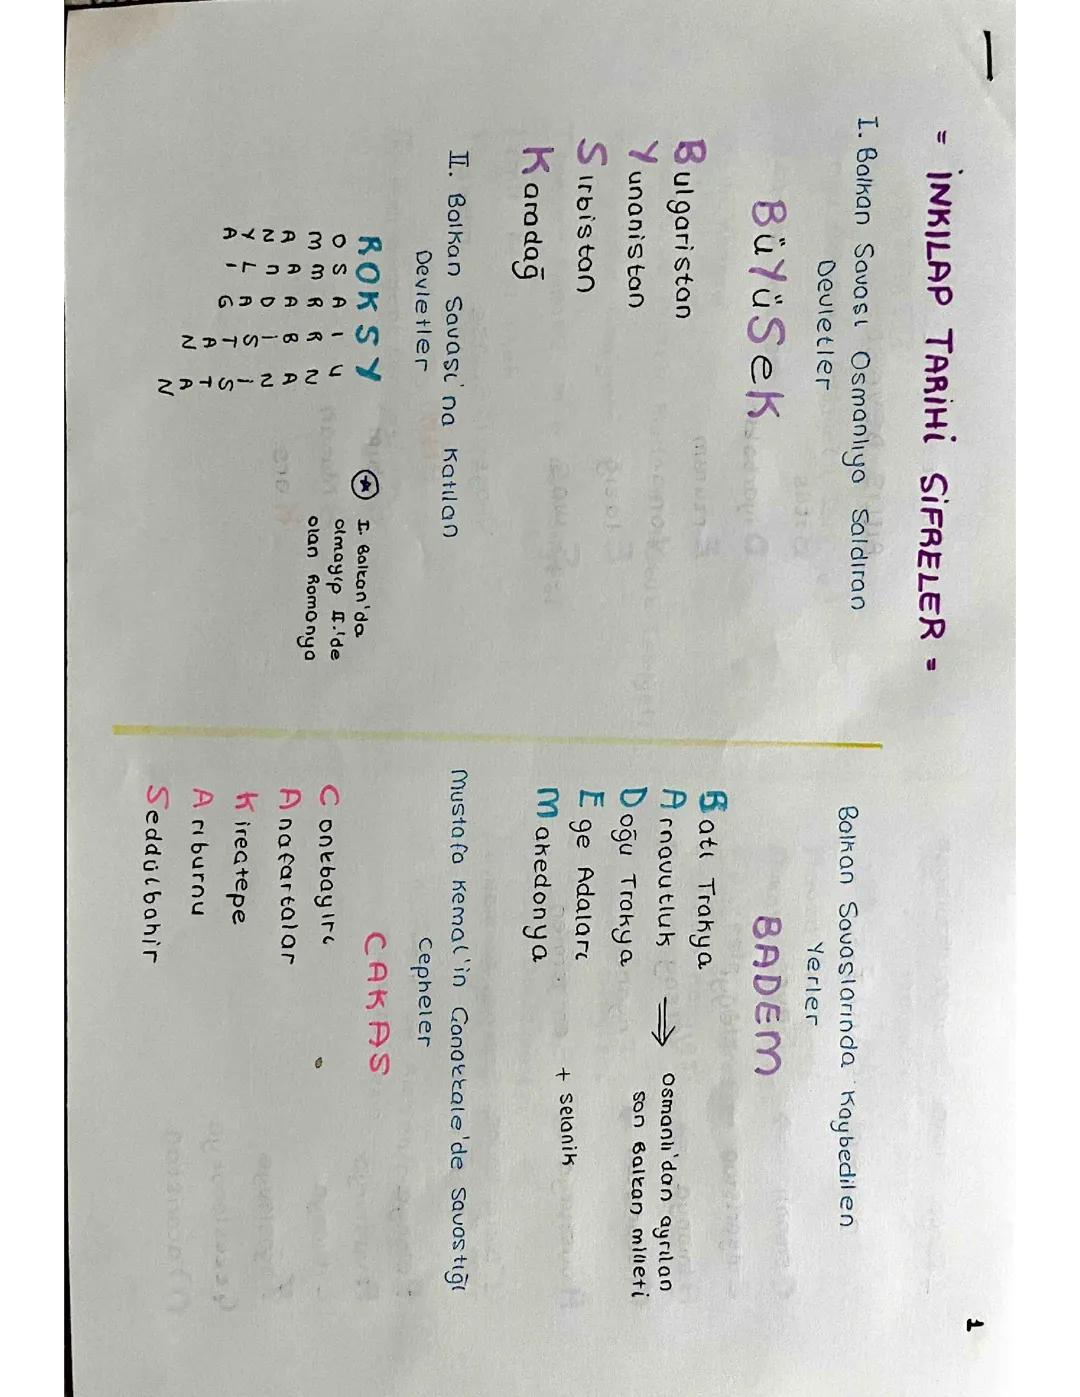 1
= İNKILAP TARİHİ ŞİFRELER =
I. Balkan Savaşı Osmanlıya Saldıran
Devletler
BüYüSeK
Bulgaristan
Yunanistan
Sırbistan
Karadağ
II. Balkan Savaşı'na Katılan
Devletler
ROKSY
OSAIU
MMRRN
AAABA
NNDİN
YLASİ
AIĞTS
AT
NA
N
I. Balkan'da
olmayıp II.'de
olan Romanya
Balkan Savaşlarında Kaybedilen
Yerler
BADEM
Batı Trakya
Arnavutluk ⇒ Osmanlı'dan ayrılan
son Balkan milleti
Doğu Trakya
Ege Adaları
Makedonya
+ Selanik
Mustafa Kemal'in Çanakkale'de Savaştığı
Cepheler
CAKAS
Conkbayırı
Anafartalar
Kireçtepe
Arıburnu
Seddülbahir